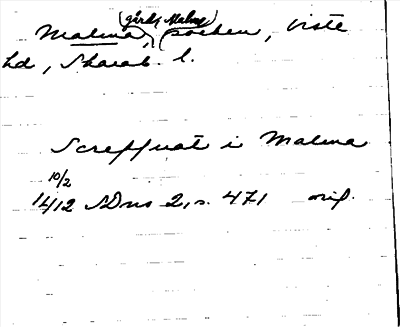 (gård Malma)
Malma, socken, Viste
hd, Skarab. l.
Screffuat i Malma
10/2
1412 SDns 2, s. 471 orig.